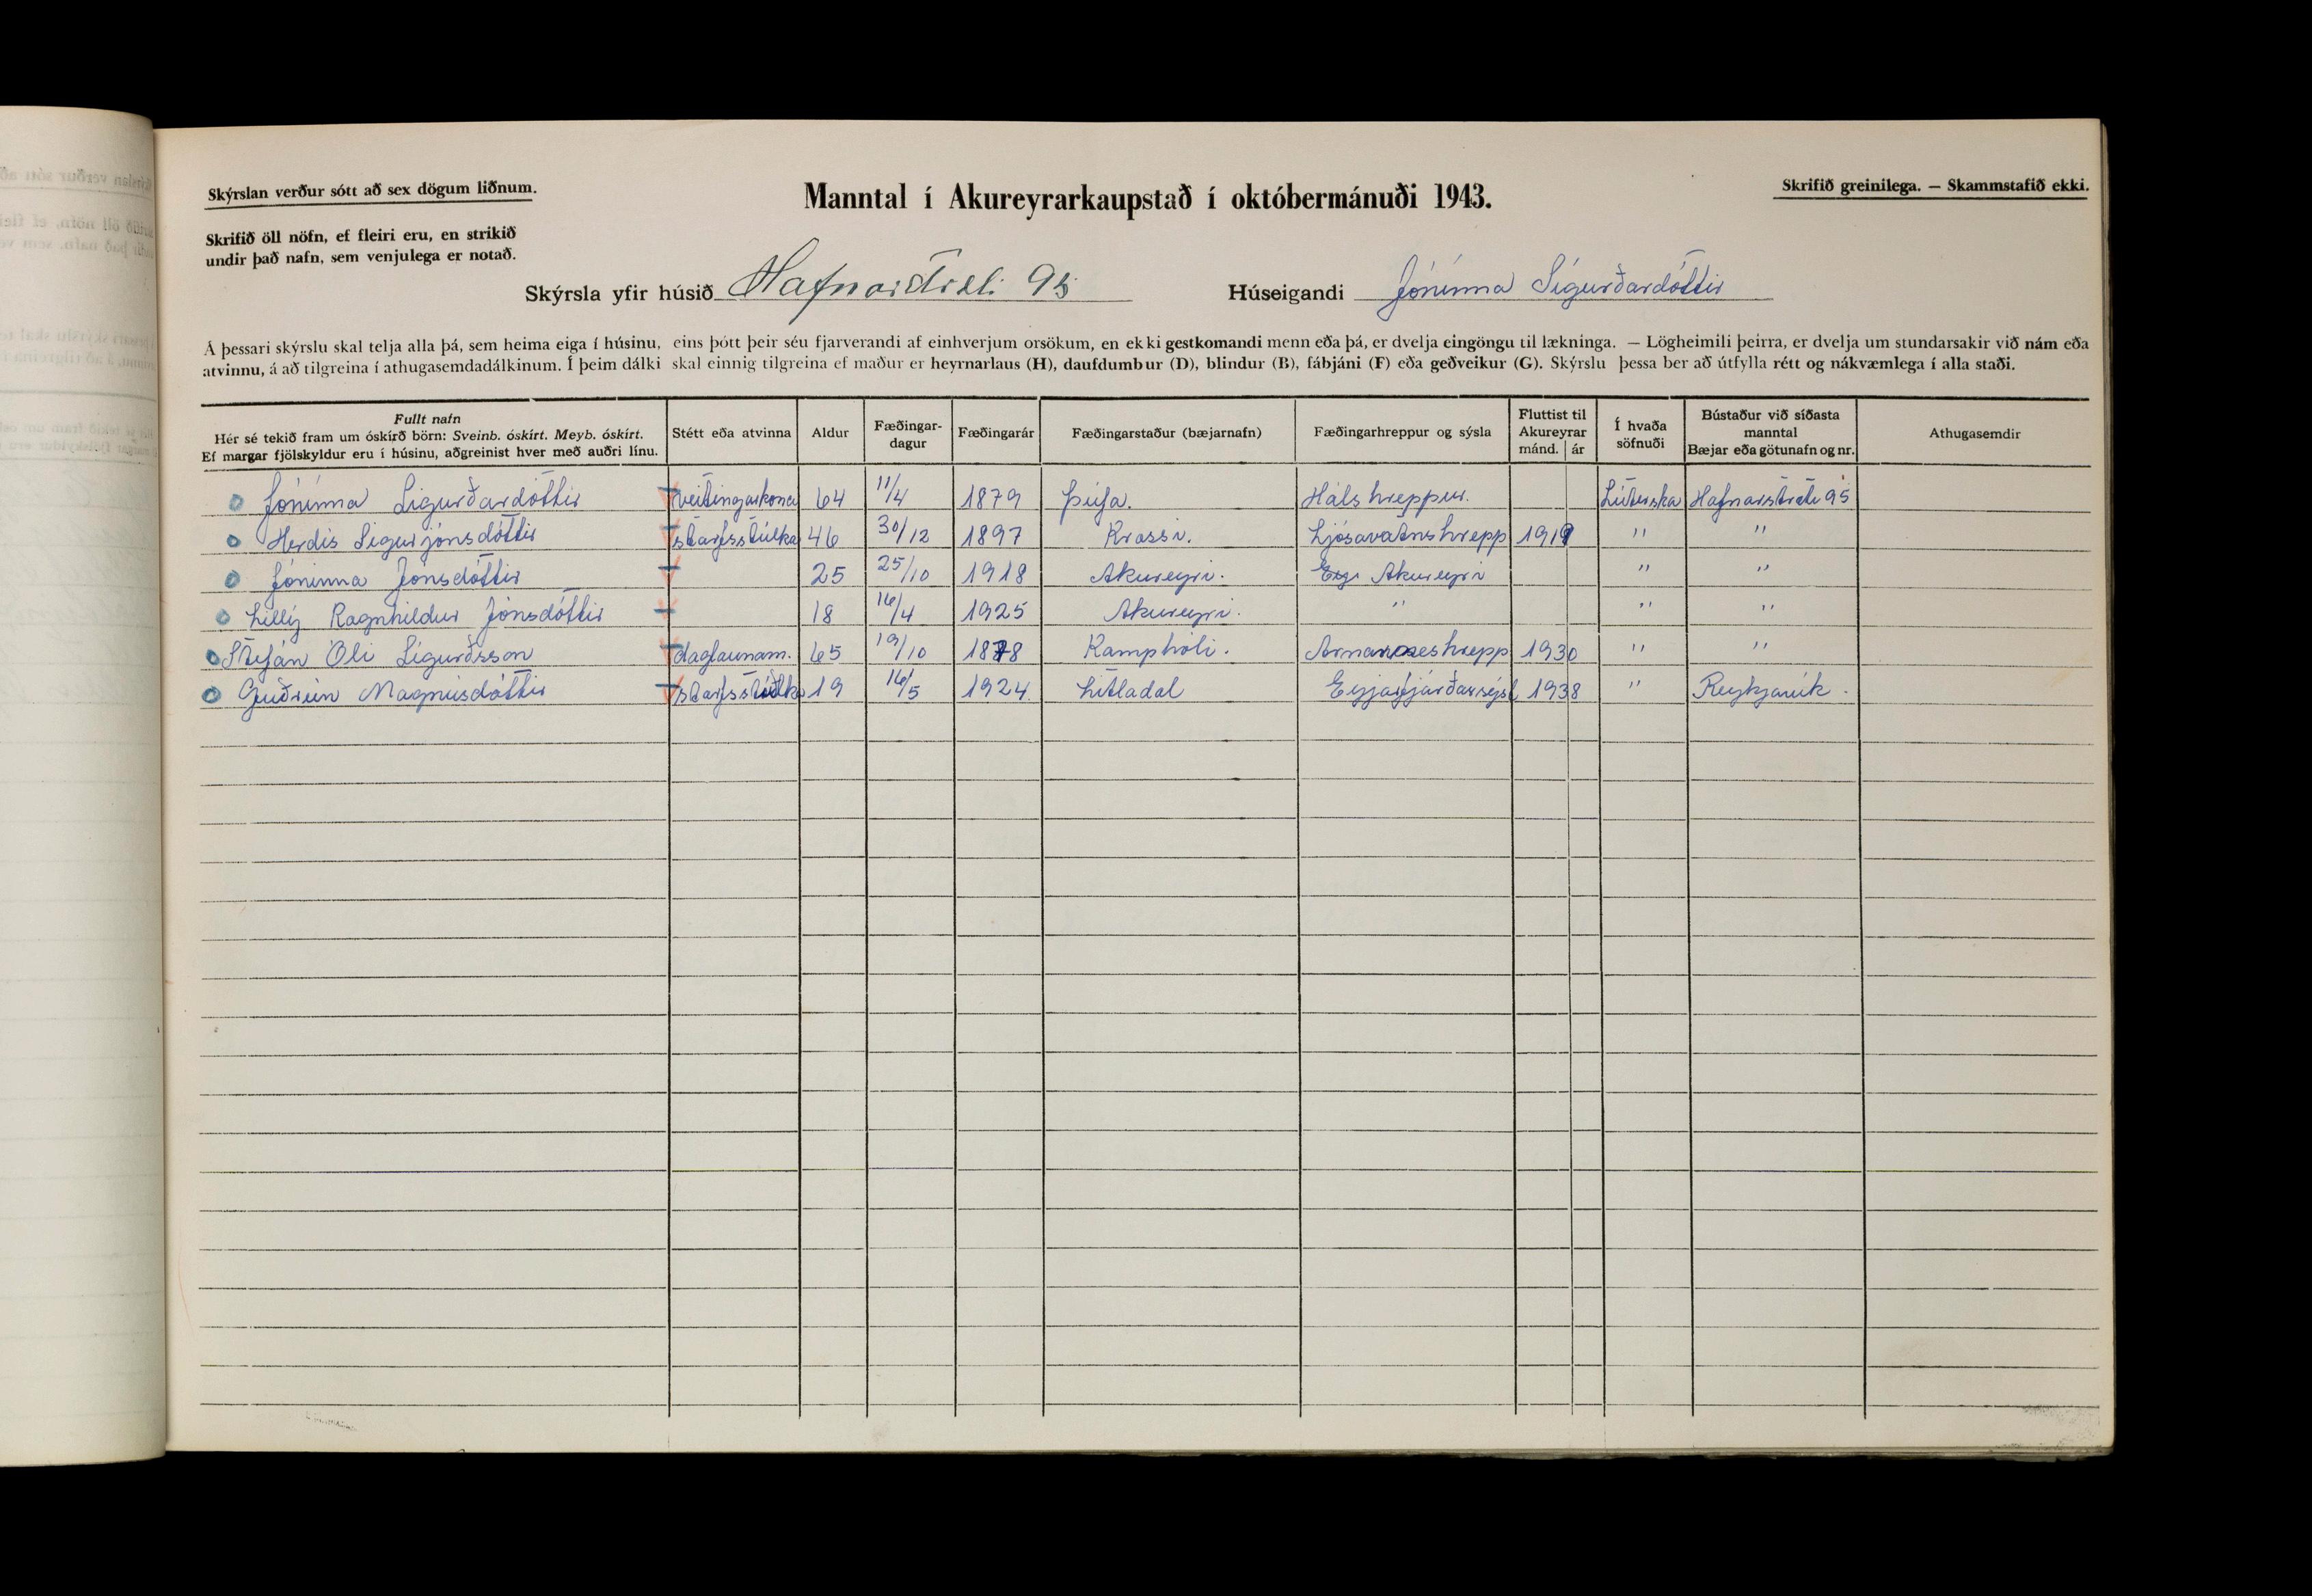 Skýrslan verður sótt að sex dögum liðnum.
Manntal í Akureyrarkaupstað í októbermánuði 1943.
Skrifið greinilega. — Skammstafið ekki.
Skrifið öll nöfn, ef fleiri eru, en strikið
undir það nafn, sem venjulega er notað.
Skýrsla yfir húsið Hafnarstræti 95 Húseigandi Jónínna Sigurðardóttir
Á þessari skýrslu skal telja alla þá, sem heima eiga í húsinu, eins þótt þeir séu fjarverandi af einhverjum orsökum, en ekki gestkomandi menn eða þá, er dvelja eingöngu til lækninga. — Lögheimili þeirra, er dvelja um stundarsakir við nám eða
atvinnu, á að tilgreina í athugasemdadálkinum. Í þeim dálki skal einnig tilgreina ef maður er heyrnarlaus (H), daufdumbur (D), blindur (B), fábjáni (F) eða geðveikur (G). Skýrslu þessa ber að útfylla rétt og nákvæmlega í alla staði.
Fullt nafn
Hér sé tekið fram um óskírð börn: Sveinb. óskírt. Meyb. óskírt.
Ef margar fjölskyldur eru í húsinu, aðgreinist hver með auðri línu.
Stétt eða atvinna
Aldur
Fæðingar-
dagur
Fæðingarár
Fæðingarstaður (bæjarnafn)
Fæðingarhreppur og sýsla
Fluttist til
Akureyrar
mánd. ár
Í hvaða
söfnuði
Bústaður við síðasta
manntal
Bæjar eða götunafn og nr.
Athugasemdir
Jónínna Sigurðardóttir veitingarkona 64 11/4 1879 Þúfa. Hálshreppur. Lúterska Hafnarstræti 95
Herdís Sigurjónsdóttir starfsstúlka 46 30/12 1897 Krossi. Ljósavatnshrepp 1919 " "
Jónínna Jónsdóttir 25 25/10 1918 Akureyri. Akureyri " "
Lillý Ragnhildur Jónsdóttir 18 16/4 1925 Akureyri. " " "
Stefán Óli Sigurðsson daglaunam. 65 19/10 1878 Kamphóli. Arnarneshrepp 1930 " "
Guðrún Magnúsdóttir starfsstúlka 19 16/5 1924. Litladal Eyjafjarðarsýsl 1938 " Reykjavík.